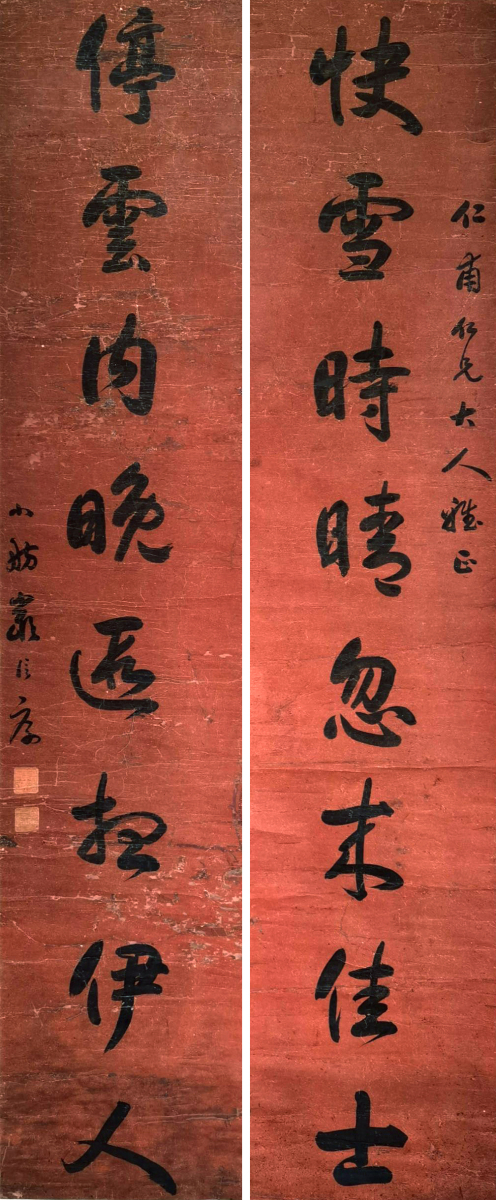 仁甫仁兄大人雅正
快雪時晴忽来佳士
停雲向晚遐想伊人
小舫嚴信厚